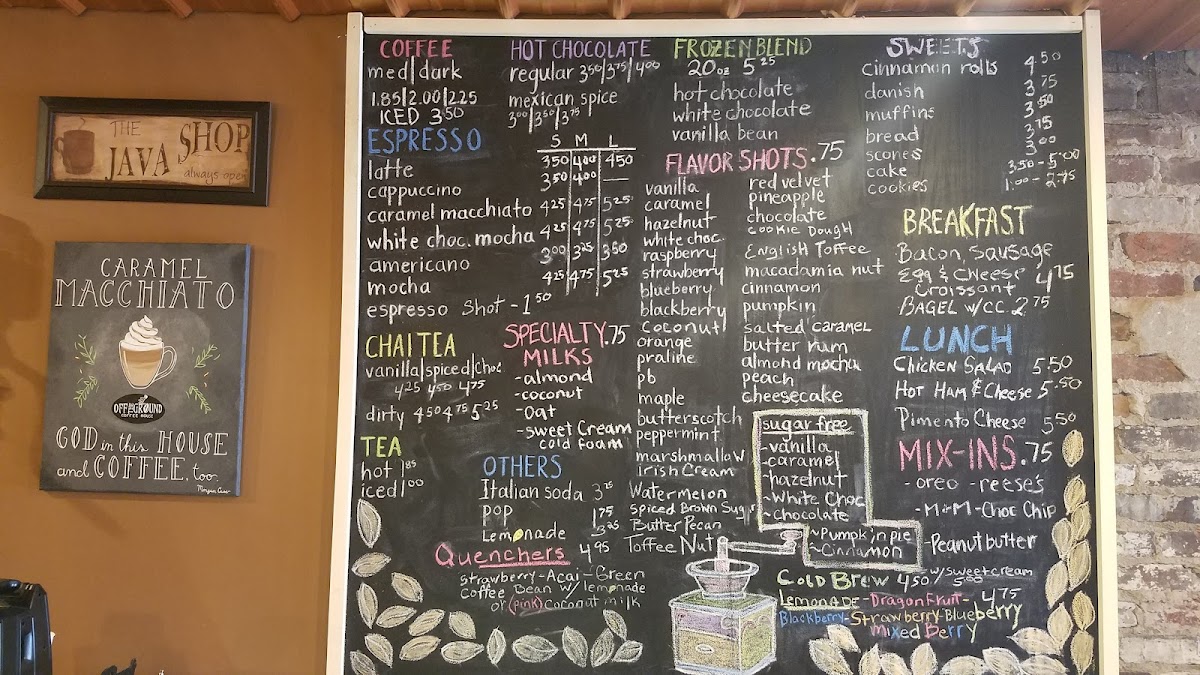 THE
JAVA SHOP
always open
CARAMEL
MACCHIATO
OFF THE GROUND
COFFEE HOUSE
GOD in this HOUSE
and COFFEE, too.
COFFEE
med|dark
1.85|2.00|2.25
ICED 3.50
ESPRESSO
S M L
latte 3.50 4.00 4.50
cappuccino 3.50 4.00 —
caramel macchiato 4.25 4.75 5.25
white choc. mocha 4.25 4.75 5.25
americano 3.00 3.25 3.50
mocha 4.25 4.75 5.25
espresso shot - 1.50
CHAI TEA
vanilla|spiced|choc
4.25 4.50 4.75
dirty 4.50 4.75 5.25
TEA
hot 1.85
iced 1.00
HOT CHOCOLATE
regular 3.50|3.75|4.00
mexican spice
3.00|3.50|3.75
SPECIALTY .75
MILKS
-almond
-coconut
-oat
-sweet cream
cold foam
OTHERS
Italian soda 3.75
pop 1.75
Lemonade 3.25
Quenchers 4.95
Strawberry-Acai-Green
Coffee Bean w/ lemonade
or (pink) coconut milk
FROZEN BLEND
20oz 5.25
hot chocolate
white chocolate
vanilla bean
FLAVOR SHOTS .75
vanilla
caramel
hazelnut
white choc.
raspberry
strawberry
blueberry
blackberry
coconut
orange
praline
pb
maple
butterscotch
peppermint
marshmallow
irish cream
Watermelon
Spiced Brown Sugr
Butter Pecan
Toffee Nut
red velvet
pineapple
chocolate
COOKIE DOUGH
ENGLISH TOFFEE
macadamia nut
cinnamon
pumpkin
salted caramel
butter rum
almond mocha
peach
cheesecake
sugar free
-vanilla
-caramel
-hazelnut
-White Choc
-chocolate
~Pumpkin pie
~Cinnamon
SWEETS
cinnamon rolls 4.50
danish 3.75
muffins 3.50
bread 3.75
scones 3.00
cake 3.50-5.00
cookies 1.00-2.75
BREAKFAST
Bacon, Sausage
Egg & Cheese
Croissant 4.75
BAGEL W/CC 2.75
LUNCH
Chicken Salad 5.50
Hot Ham & Cheese 5.50
Pimento Cheese 5.50
MIX-INS .75
-oreo -reese's
-M+M -Choc Chip
-Peanut butter
COLD BREW 4.50/ w/sweet cream 5.00
LEMONADE-Dragon Fruit- 4.75
Blackberry-Strawberry-Blueberry
Mixed Berry